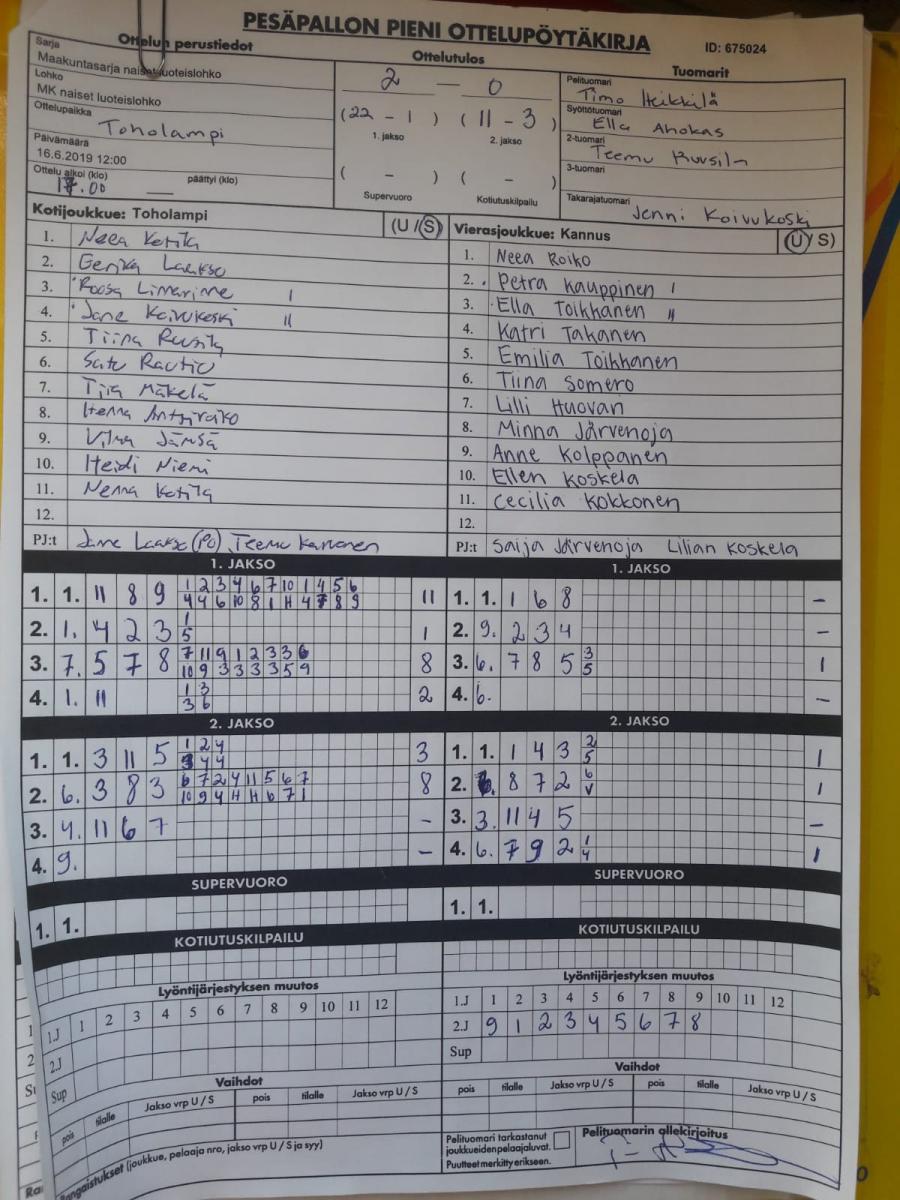 PESÄPALLON PIENI OTTELUPÖYTÄKIRJA
ID: 675024
Ottelun perustiedot
Sarja
Maakuntasarja naiset luoteislohko
Lohko
MK naiset luoteislohko
Ottelupaikka
Toholampi
Päivämäärä
16.6.2019 12:00
Ottelu alkoi (klo) päättyi (klo)
17.00
Ottelutulos
2 — 0
(22 - 1) (11 - 3)
1. jakso 2. jakso
( - ) ( - )
Supervuoro Kotiutuskilpailu
Tuomarit
Pelituomari
Timo Heikkilä
Syöttötuomari
Ella Ahokas
2-tuomari
Teemu
3-tuomari
Takarajatuomari
Jenni Koivukoski
Kotijoukkue: Toholampi (U / S)
1. Neea Kotila
2. Laakso
3. Roosa Limarinne I
4. Jane Koivukoski II
5. Tiina Ruusila
6. Satu Rautio
7. Tiia Mäkelä
8. Henna
9. Vilma Jämsä
10. Heidi Niemi
11. Nenna Kotila
12.
PJ:t Jane Laakso (PO), Teemu
Vierasjoukkue: Kannus (U / S)
1. Neea Roiko
2. Petra Kauppinen I
3. Ella Toikkanen II
4. Katri Takanen
5. Emilia Toikkanen
6. Tiina Somero
7. Lilli Huovari
8. Minna Järvenoja
9. Anne Kolppanen
10. Ellen Koskela
11. Cecilia Kokkonen
12.
PJ:t Saija Järvenoja Lilian Koskela
1. JAKSO
1. 1. 11 8 9 1 2 3 4 6 7 10 1 4 5 6 11
4 4 6 10 8 1 11 4 7 8 9
2. 1. 4 2 3 1 1
5
3. 7. 5 7 8 7 11 9 1 2 3 3 6 8
10 9 3 3 3 3 5 9
4. 1. 11 1 3 2
3 6
1. JAKSO
1. 1. 1 6 8 –
2. 9. 2 3 4 –
3. 6. 7 8 5 3 1
5
4. 6. –
2. JAKSO
1. 1. 3 11 5 1 2 4 3
3 4 4
2. 6. 3 8 3 6 7 2 4 11 5 6 7 8
10 9 4 11 11 6 7 1
3. 4. 11 6 7 –
4. 9. –
2. JAKSO
1. 1. 1 4 3 2 1
5
2. 6. 8 7 2 6 1
V
3. 3. 11 4 5 –
4. 6. 7 9 2 1 1
4
SUPERVUORO
1. 1.
SUPERVUORO
1. 1.
KOTIUTUSKILPAILU
KOTIUTUSKILPAILU
Lyöntijärjestyksen muutos
1.J 1 2 3 4 5 6 7 8 9 10 11 12
2.J
Sup
Lyöntijärjestyksen muutos
1.J 1 2 3 4 5 6 7 8 9 10 11 12
2.J 9 1 2 3 4 5 6 7 8
Sup
Vaihdot
pois tilalle Jakso vrp U / S pois tilalle Jakso vrp U / S
Vaihdot
pois tilalle Jakso vrp U / S pois tilalle Jakso vrp U / S
(joukkue, pelaaja nro, jakso vrp U / S ja syy)
Pelituomari tarkastanut
joukkueiden pelaajaluvat.
Puutteet merkitty erikseen.
Pelituomarin allekirjoitus